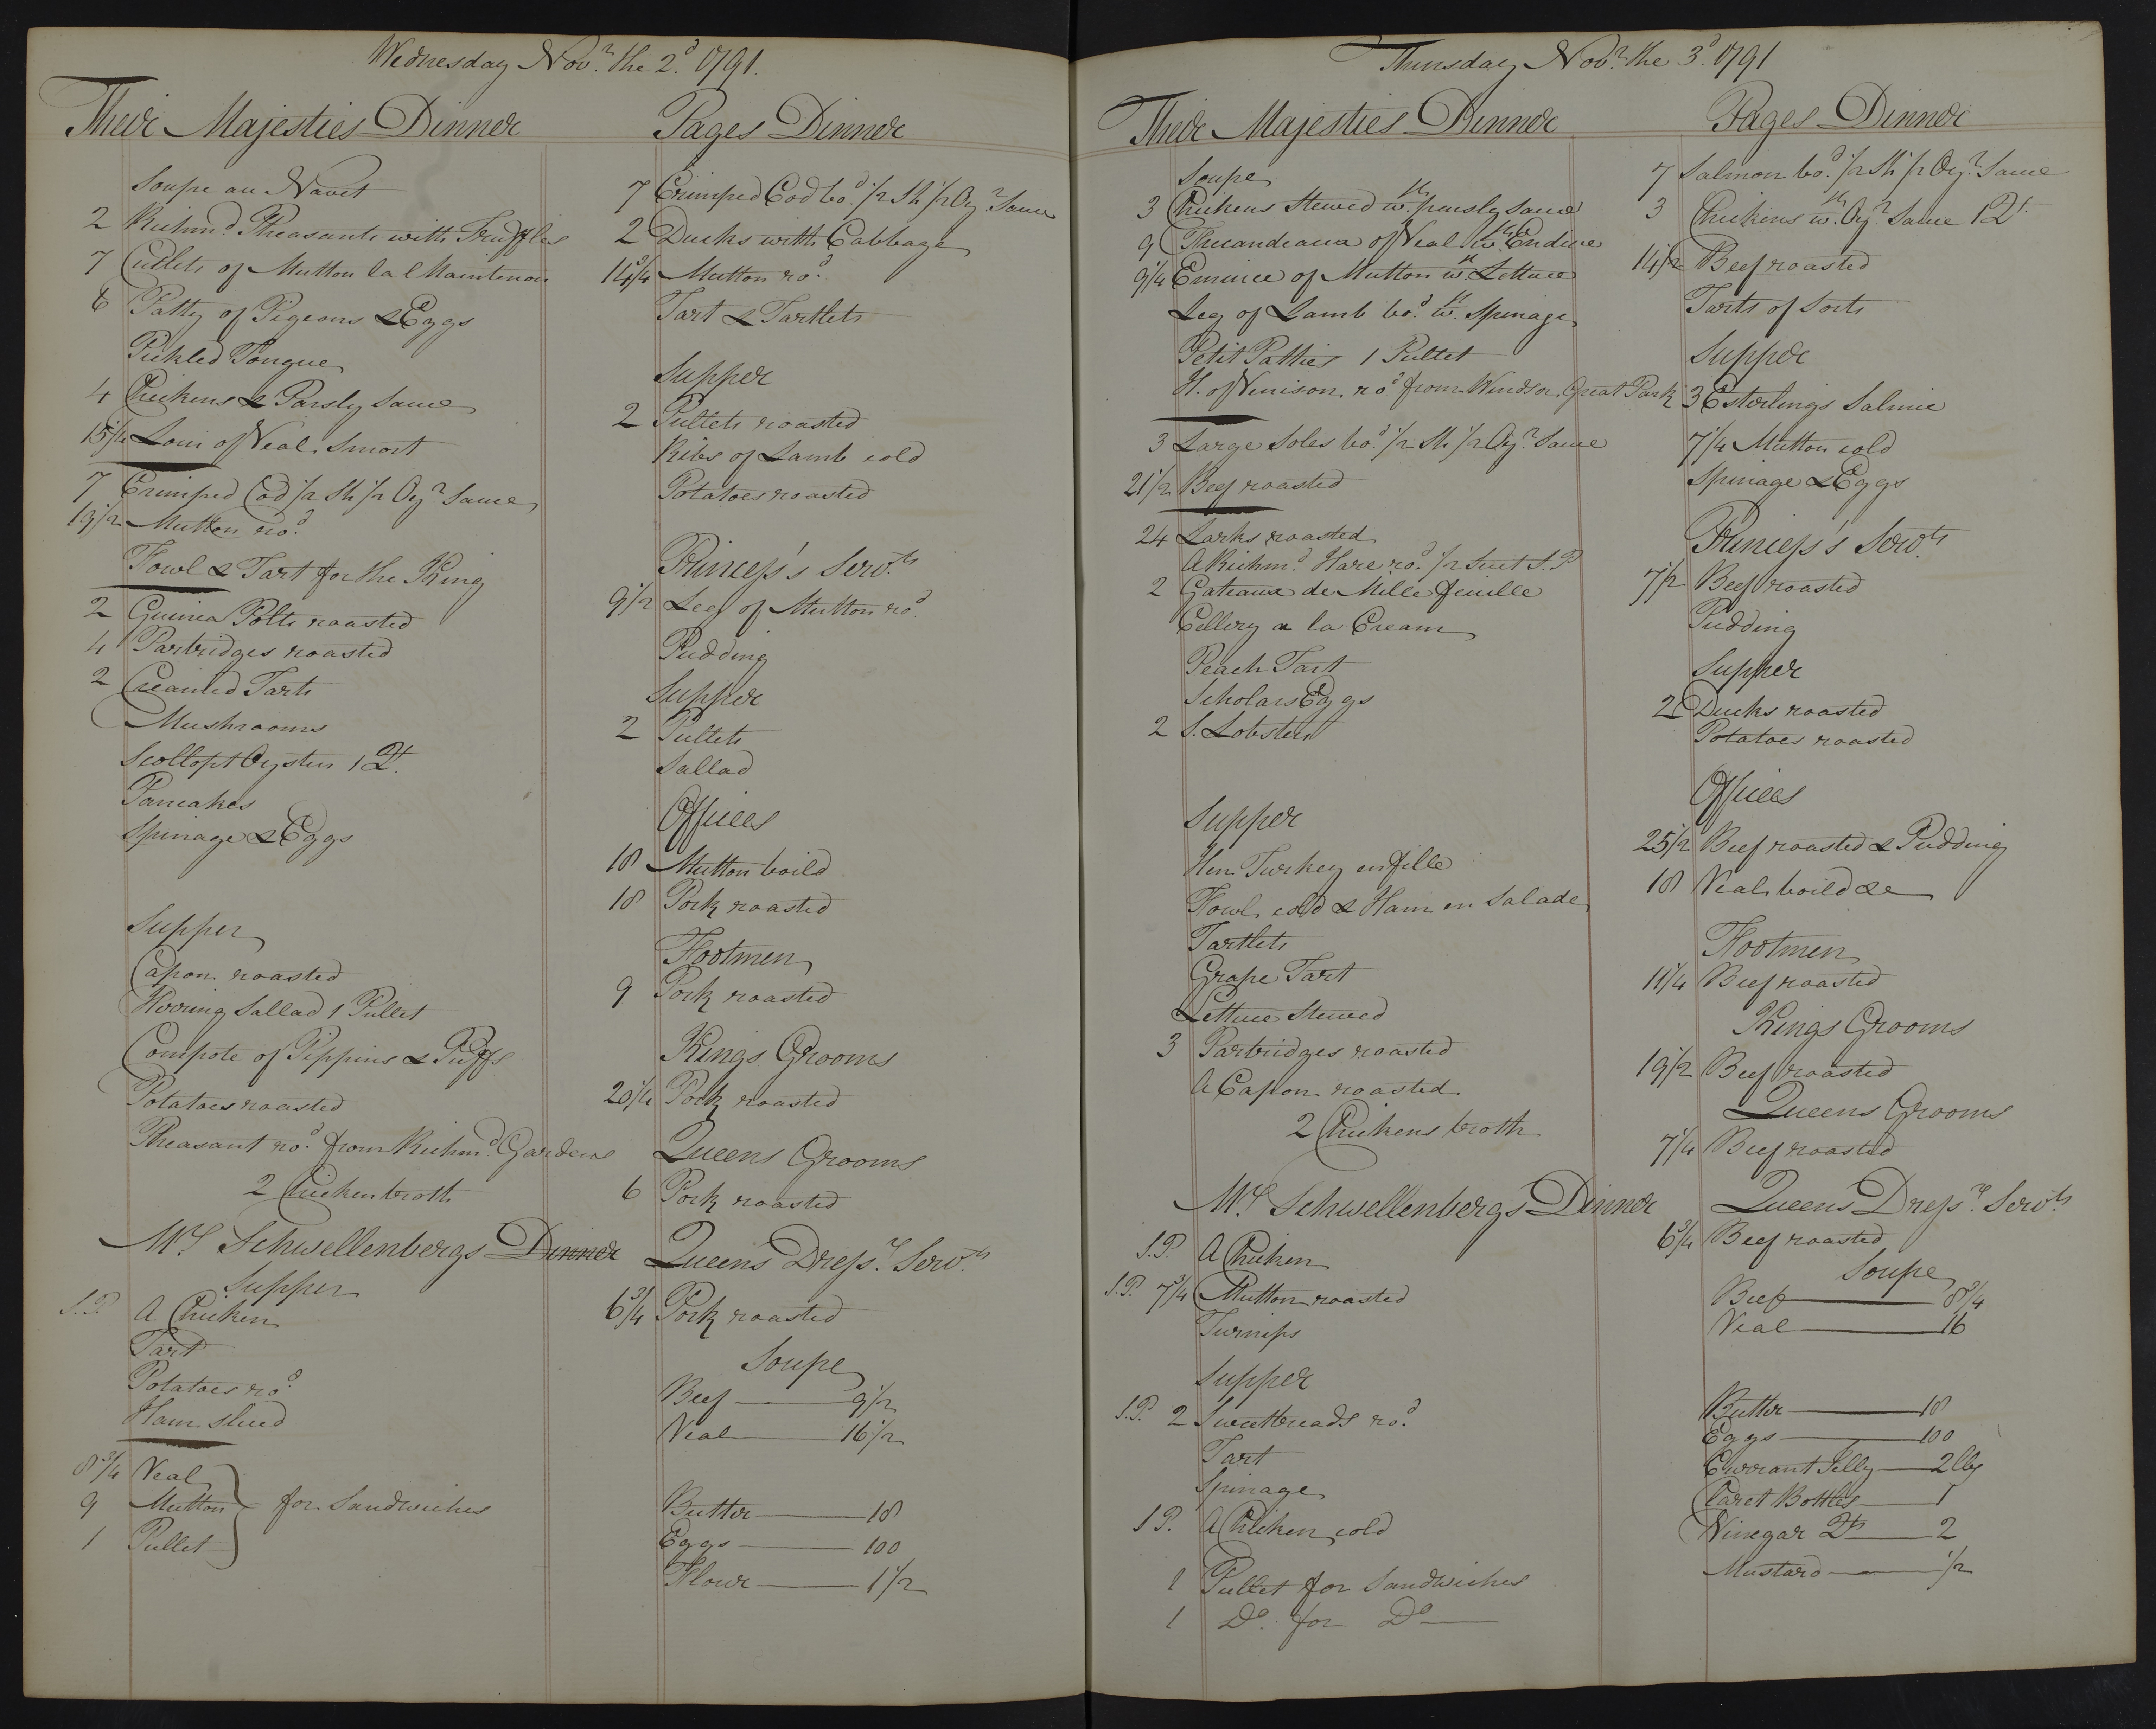 Wednesday Novr. the 2d. 1791.
Their Majesties Dinner
Soupe au Navet
2 Richmd. Pheasants with Truffles
7 Cutlets of Mutton la l Maintenon
6 Patty of Pigeons & Eggs
Pickled Tongue
4 Chickens & Parsly Sauce
15 1/4 Loin of Veal Smort
7 Crimped Cod 1/2 Sh 1/2 Oyr. Sauce
19 1/2 Mutton rod.
Fowl & Tart for the King
2 Guinea Polts roasted
4 Partridges roasted
2 Creamed Tarts
Mushrooms
Scollopt Oysters 1 Qt.
Pancakes
Spinage & Eggs
Supper
Capon roasted
Herring Sallad 1 Pullet
Compote of Pippins & Puffs
Potatoes roasted
Pheasant rod. from Richmd. Gardens
2 Chicken broth
Mrs Schwellenbergs Dinner
Supper
S.P. A Chicken
Tart
Potatoes rod.
Ham sliced
8 3/4 Veal
9 Mutton for Sandwiches
1 Pullet
Pages Dinner
7 Crimped Cod bod. 1/2 Sh 1/2 Oyr. Sauce
2 Ducks with Cabbage
14 3/4 Mutton rod.
Tart & Tartlets
Supper
2 Pullets roasted
Ribs of Lamb cold
Potatoes roasted
Princess's Servts.
9 1/2 Leg of Mutton rod.
Pudding
Supper
2 Pullets
Sallad
Offices
18 Mutton boild
18 Pork roasted
Footmen
9 Pork roasted
Kings Grooms
20 1/4 Pork roasted
Queens Grooms
6 Pork roasted
Queens Dressrs. Servts.
6 3/4 Pork roasted
Soupe
Beef 9 1/2
Veal 16 1/2
Butter 18
Eggs 100
Flour 1 1/2
Thursday Novr. the 3d. 1791
Their Majesties Dinner
Soupe
3 Chickens Stewed wth. parsly Sauce
9 Fricandeaux of Veal wth. Endive
9 1/4 Emince of Mutton wth. Lettuce
Leg of Lamb bod. wth. Spinage
Petit Patties 1 Pullet
H. of Venison rod. from Windsor Great Park
3 Large Soles bod. 1/2 Sh 1/2 Oyr. Sauce
21 1/2 Beef roasted
24 Larks roasted
A Richmd. Hare rod. 1/2 Suet S.P
2 Gateaux de Mille feuille
Cellery a la Cream
Peach Tart
Scholars Eggs
2 S. Lobsters
Supper
Hen Turkey en fille
Fowl cold & Ham en Salade
Tartlets
Grape Tart
Lettuce Stewed
3 Partridges roasted
A Capon roasted
2 Chickens broth
Mrs Schwellenbergs Dinner
S.P. A Chicken
S.P. 7 3/4 Mutton roasted
Turnips
Supper
S.P. 2 Sweetbreads rod.
Tart
Spinage
S P. A Chicken cold
1 Pullet for Sandwiches
1 Do. for Do
Pages Dinner
7 Salmon bod. 1/2 Sh 1/2 Oyr. Sauce
3 Chickens wth. Oyr. Sauce 1 Qt.
14 1/2 Beef roasted
Tarts of Sorts
Supper
3 Esterlings Salmie
7 1/4 Mutton cold
Spinage & Eggs
Princess's Servts.
7 1/2 Beef roasted
Pudding
Supper
2 Ducks roasted
Potatoes roasted
Offices
25 1/2 Beef roasted & Pudding
18 Veal boild &c
Footmen
11 1/4 Beef roasted
Kings Grooms
19 1/2 Beef roasted
Queens Grooms
7 1/4 Beef roasted
Queens Dressrs. Servts
6 3/4 Beef roasted
Soupe
Beef 8 3/4
Veal 16
Butter 18
Eggs 100
Currant Jelly 2 lbs
Claret Bottles 1
Vinegar Qts 2
Mustard 1/2